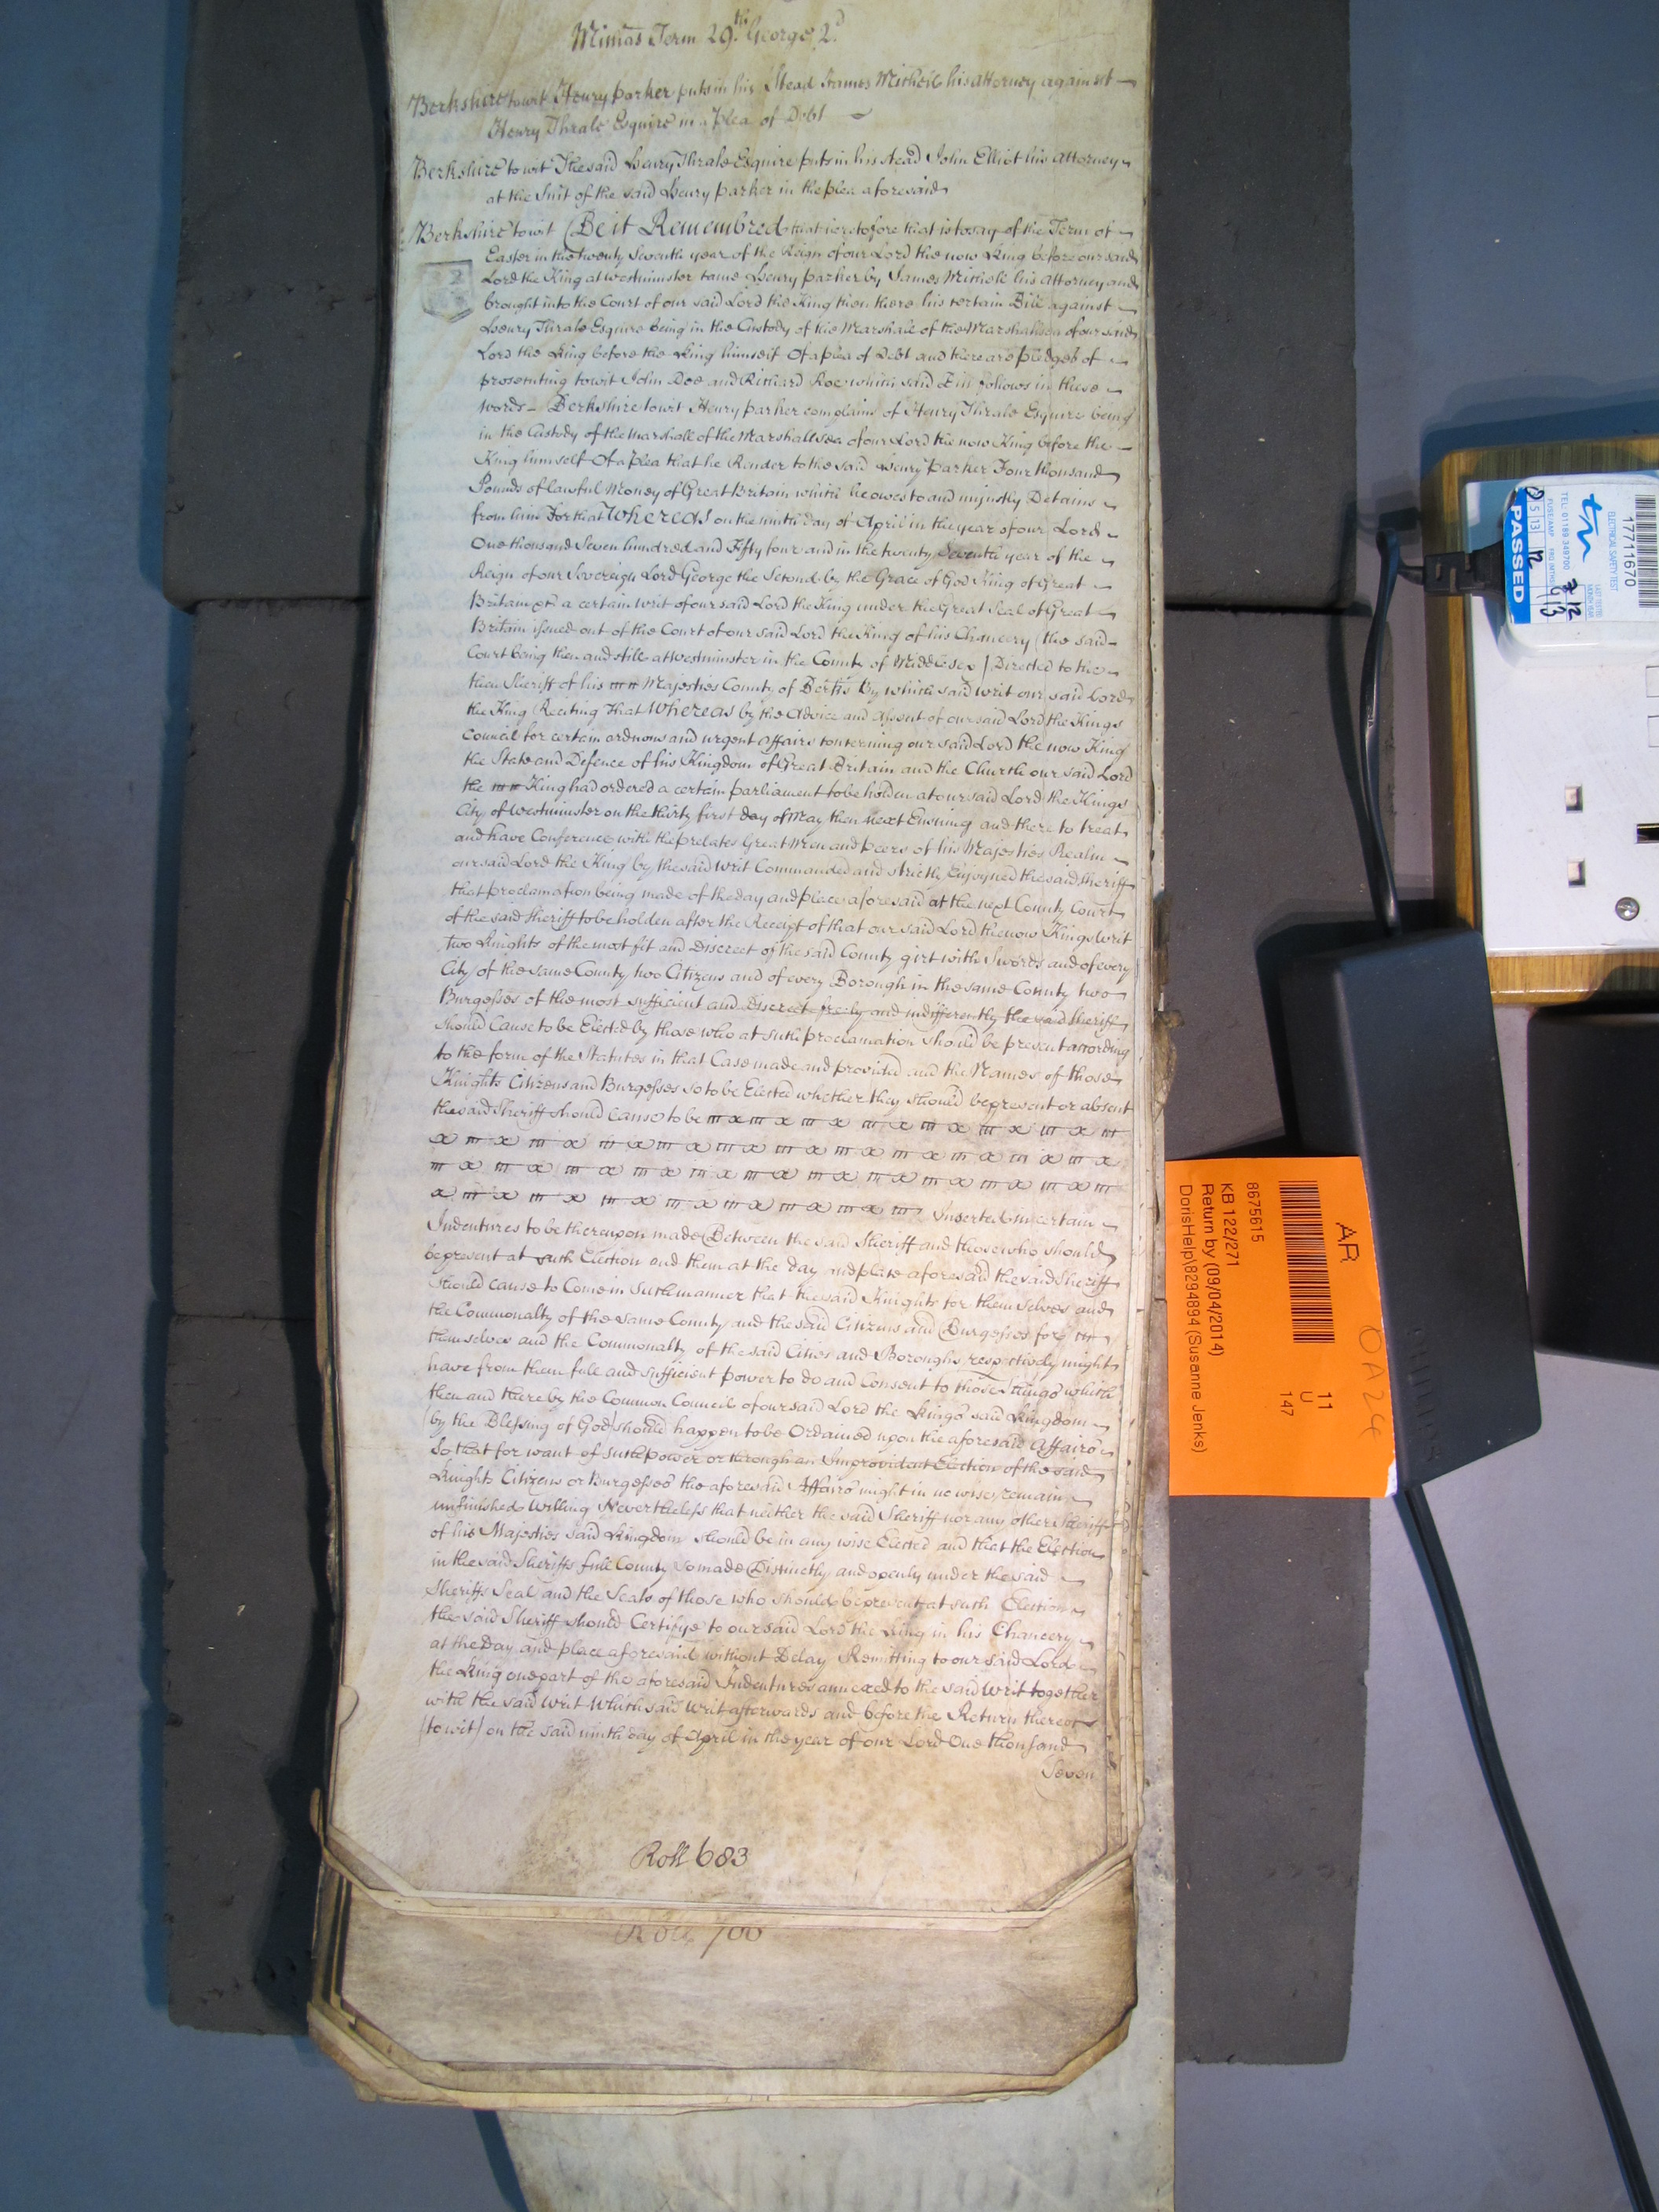 Mimas Term 29.th George 2.d
Berkshire towit Henry Parker puts in his Stead James Michell his Attorney against
Henry Thrale Esquire in a Plea of Debt
Berkshire to wit The said Henry Thrale Esquire puts in his stead John Elliot his Attorney
at the Suit of the said Henry Parker in the plea aforesaid
Berkshire to wit Be it Remembred that heretofore that is to say of the Term of
Easter in the twenty Seventh year of the Reign of our Lord the now King before our said
Lord the King at Westminster came Henry Parker by James Michell his Attorney and
brought into the Court of our said Lord the King then there his certain Bill against
Henry Thrale Esquire being in the Custody of the Marshall of the Marshallsea of our said
Lord the King before the King himself Of a plea of Debt and there are pledges of
prosecuting towit John Doe and Richard Roe which said Bill follows in these
words Berkshire towit Henry Parker complains of Henry Thrale Esquire being
in the Custody of the Marshall of the Marshallsea of our Lord the now King before the
King himself Of a Plea that he Render to the said Henry Parker Four thousand
Pounds of lawful Money of Great Britain which he owes to and unjustly Detains
from him For that Whereas on the ninth day of April in the year of our Lord
One thousand Seven hundred and Fifty four and in the twenty Seventh year of the
Reign of our Sovereign Lord George the Second by the Grace of God King of Great
Britain &c a certain Writ of our said Lord the King under the Great Seal of Great
Britain issued out of the Court of our said Lord the King of his Chancery (the said
Court being then and still at Westminster in the County of Middlesex) Directed to the
then Sheriff of his Majesties County of Berks By which said writ our said Lord
the King Reciting That Whereas by the Advice and Assent of our said Lord the Kings
Council for certain arduous and urgent Affairs concerning our said Lord the now King
the State and Defence of his Kingdom of Great Britain and the Church our said Lord
the King had ordered a certain parliament to be holden at our said Lord the Kings
City of Westminster on the thirty first day of May then next Ensuing and there to treat
and have Conference with the prelates Great Men and peers of his Majesties Realm
our said Lord the King by the said Writ Commanded and strictly Enjoyned the said Sheriff
that proclamation being made of the day and place aforesaid at the next County Court
of the said Sheriff to be holden after the Receipt of that our said Lord the now Kings Writ
two Knights of the most fit and Discreet of the said County girt with Swords and of every
City of the same County two Citizens and of every Borough in the same County two
Burgesses of the most sufficient and discreet freely and indifferently the said Sheriff
should Cause to be Elected by those who at such proclamation should be present according
to the form of the Statutes in that Case made and provided and the Names of those
Knights Citizens and Burgesses so to be Elected whether they should be present or absent
the said Sheriff should cause to be
Inserted in certain
Indentures to be thereupon made Between the said Sheriff and those who should
be present at such Election and them at the day and place aforesaid the said Sheriff
should cause to Come in such manner that the said Knights for themselves and
the Commonalty of the same County and the said Citizens and Burgesses for
themselves and the Commonalty of the said Cities and Boroughs respectively might
have from them full and sufficient power to do and Consent to those things which
then and there by the Common Council of our said Lord the Kings said Kingdom
(by the Blessing of God) should happen to be Ordained upon the aforesaid Affairs
So that for want of such power or through an Improvident Election of the said
Knights Citizens or Burgesses the aforesaid Affairs might in no wise remain
unfinished Willing Nevertheless that neither the said Sheriff nor any other Sheriff
of his Majesties said Kingdom should be in any wise Elected and that the Election
in the said Sheriffs full County so made Distinctly and openly under the said
Sheriffs Seal and the Seals of those who should be present at such Election
the said Sheriff should Certifye to our said Lord the King in his Chancery
at the Day and place aforesaid without Delay Remitting to our said Lord
the King one part of the aforesaid Indentures annexed to the said Writ together
with the said Writ Which said Writ afterwards and before the Return thereof
(to wit) on the said ninth day of April in the year of our Lord One thousand
Seven
Roll 683
Roll 700
AR
11
U
147
8675615
KB 122/271
Return by (09/04/2014)
DorisHelp\8294894 (Susanne Jenks)
PHILIPS
17711670
ELECTRICAL SAFETY TEST
TEL: 01189 349700
PASSED